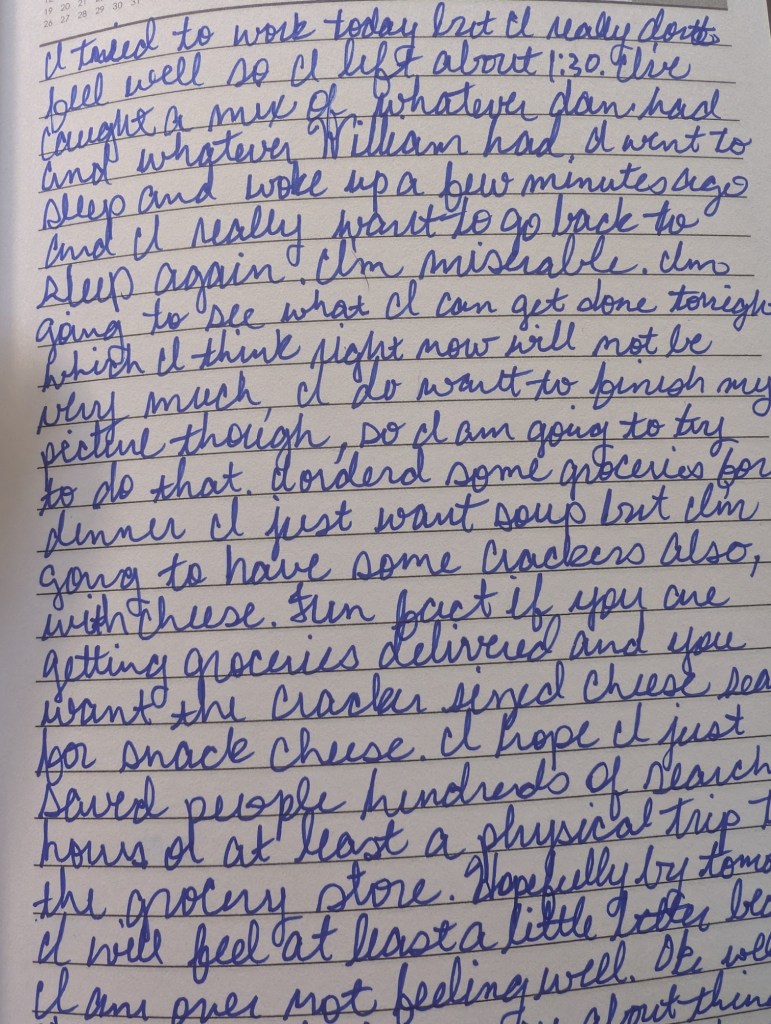 19 20 21
26 27 28 29 30 31
I tried to work today but I really dont
feel well so I left about 1:30. I've
caught a mix of whatever dan had
and whatever William had. I went to
sleep and woke up a few minutes ago
and I really want to go back to
sleep again. I'm miserable. Im
going to see what I can get done tonigh
which I think right now will not be
very much, I do want to finish my
picture though, so I am going to try
to do that. I orderd some groceries for
dinner I just want soup but I'm
going to have some crackers also,
with cheese. Fun fact if you are
getting groceries delivered and you
want the cracker sized cheese sea
for snack cheese. I hope I just
saved people hundreds of search
hours or at least a physical trip t
the grocery store. Hopefully by tomo
I will feel at least a little better bec
I am over not feeling well. Ok well
about thin